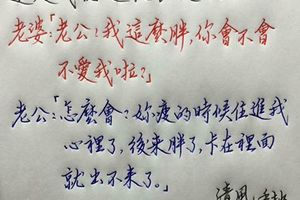 老婆:「老公!我這麼胖,你會不會
不愛我啦?」
老公:「怎麼會?妳瘦的時候住進我
心裡了,後來胖了,卡在裡面
就出不來了。」